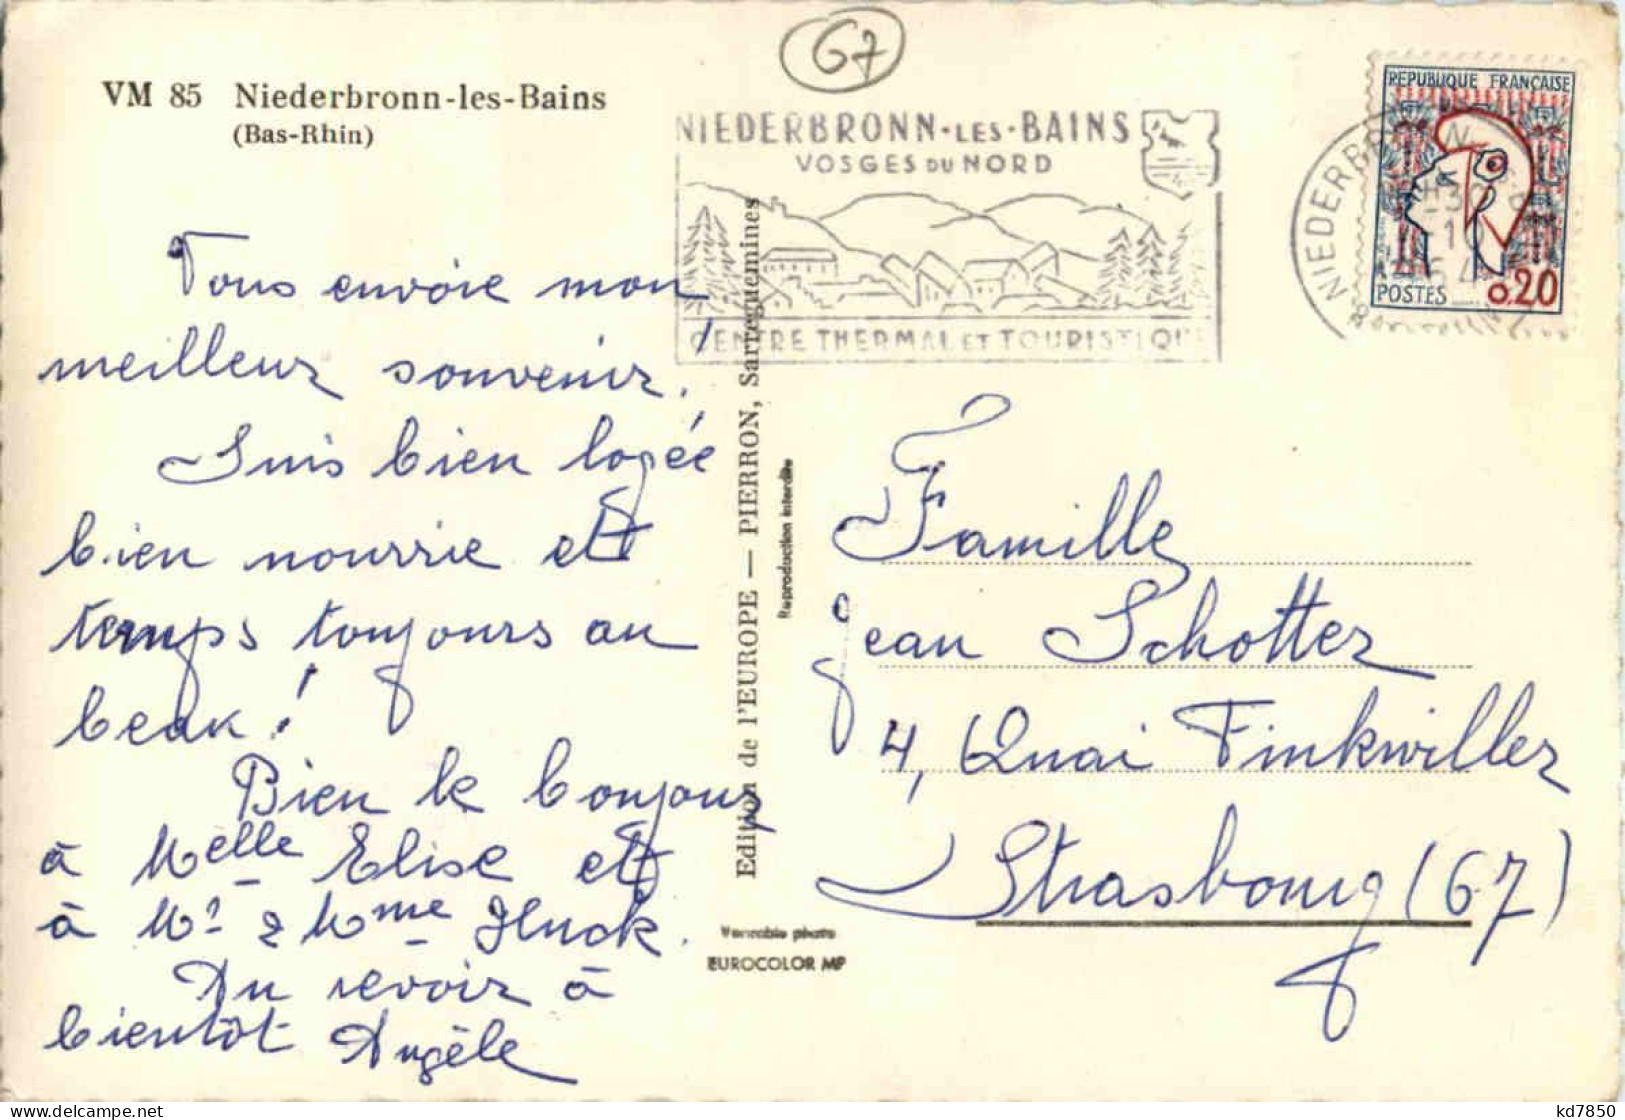 67
VM 85 Niederbronn-les-Bains
(Bas-Rhin)
NIEDERBRONN-LES-BAINS
VOSGES DU NORD
CENTRE THERMAL ET TOURISTIQUE
REPUBLIQUE FRANÇAISE
POSTES 0,20
NIEDERBRONN
Vous envoie mon
meilleur souvenir.
Suis bien logée
bien nourrie et
temps toujours au
beau !
Bien le bonjour
à Melle Elise et
à Mr & Mme Gluck.
Au revoir à
bientôt Angèle
Edition de l'EUROPE — PIERRON, Sarreguemines
Reproduction interdite
Véritable photo
EUROCOLOR MP
Famille
Jean Schotter
4, Quai Finkwiller
Strasbourg (67)
kd7850